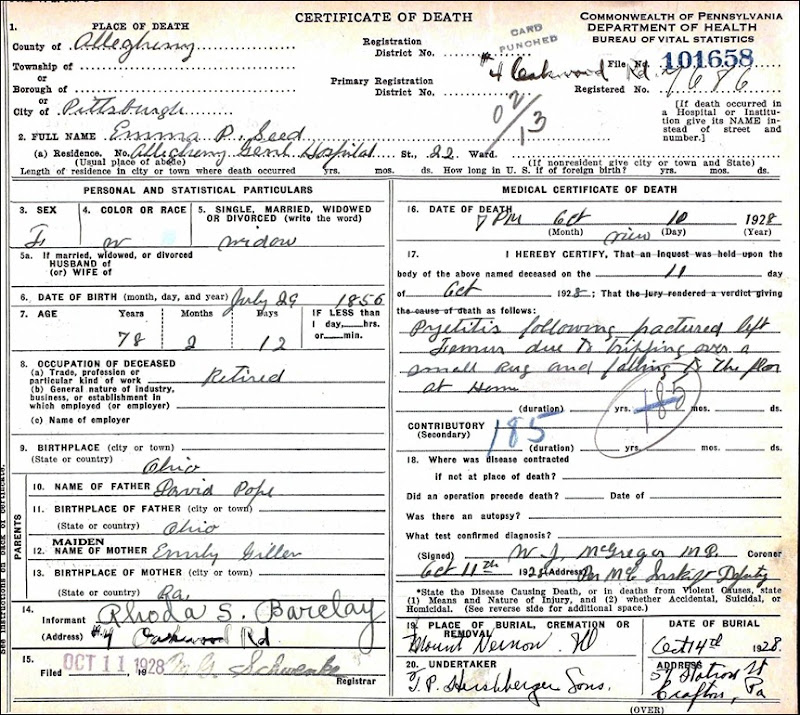 CERTIFICATE OF DEATH
COMMONWEALTH OF PENNSYLVANIA
DEPARTMENT OF HEALTH
BUREAU OF VITAL STATISTICS
1. PLACE OF DEATH
County of Allegheny
Township of
or
Borough of
or
City of Pittsburgh
Registration
District No.
CARD
PUNCHED
Primary Registration
District No.
#4 Oakwood Rd.
02/13
File No. 101658
Registered No. 7686
[If death occurred in
a Hospital or Institu-
tion give its NAME in-
stead of street and
number.]
2. FULL NAME Emma P. Seed
(a) Residence. No. Allegheny Genl Hospital St., 22 Ward.
(Usual place of abode) (If nonresident give city or town and State)
Length of residence in city or town where death occurred yrs. mos. ds. How long in U. S. if of foreign birth? yrs. mos. ds.
PERSONAL AND STATISTICAL PARTICULARS
3. SEX
F
4. COLOR OR RACE
W
5. SINGLE, MARRIED, WIDOWED
OR DIVORCED (write the word)
widow
5a. If married, widowed, or divorced
HUSBAND of
(or) WIFE of
6. DATE OF BIRTH (month, day, and year) July 29 1856
7. AGE Years Months Days
78 2 12
IF LESS than
1 day,----hrs.
or----min.
8. OCCUPATION OF DECEASED
(a) Trade, profession or
particular kind of work Retired
(b) General nature of industry,
business, or establishment in
which employed (or employer)
(c) Name of employer
9. BIRTHPLACE (city or town)
(State or country) Ohio
PARENTS
10. NAME OF FATHER David Pope
11. BIRTHPLACE OF FATHER (city or town)
(State or country) Ohio
12. MAIDEN NAME OF MOTHER Emily Giller
13. BIRTHPLACE OF MOTHER (city or town)
(State or country) Pa.
14. Informant Rhoda S. Barclay
(Address) #4 Oakwood Rd
15. Filed OCT 11 1928 Schwenke
Registrar
MEDICAL CERTIFICATE OF DEATH
16. DATE OF DEATH 7 PM Oct 10 1928
(Month) (Day) (Year)
view
17. I HEREBY CERTIFY, That an inquest was held upon the
body of the above named deceased on the 11 day
of Oct 1928; That the jury rendered a verdict giving
the cause of death as follows:
Pyelitis following fractured left
Femur due to tripping over a
small rug and falling to the floor
at Home
(duration) yrs. mos. ds.
185
CONTRIBUTORY
(Secondary)
185
(duration) yrs. mos. ds.
18. Where was disease contracted
if not at place of death?
Did an operation precede death? Date of
Was there an autopsy?
What test confirmed diagnosis?
(Signed) W. J. McGregor M.D. Coroner
Oct 11th 1928 (Address) Per Deputy
*State the Disease Causing Death, or in deaths from Violent Causes, state
(1) Means and Nature of Injury, and (2) whether Accidental, Suicidal, or
Homicidal. (See reverse side for additional space.)
19. PLACE OF BURIAL, CREMATION OR
REMOVAL
Mount Vernon
DATE OF BURIAL
Oct 14th 1928
20. UNDERTAKER
J. P. Hershberger Sons.
ADDRESS
St
Crafton, Pa
(OVER)
See instructions on back of certificate.